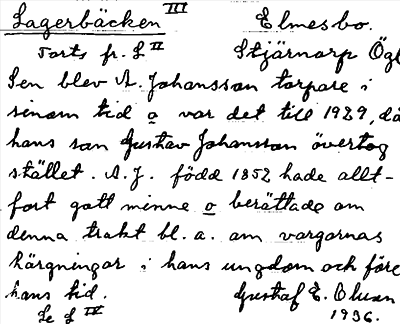 Lagerbäcken III Elmesbo.
Forts fr. L II Stjärnarp Ögl
Sen blev A. Johansson torpare i
sinom tid o var det till 1929, då
hans son Gustav Johansson övertog
stället. A. J. född 1852 hade allt-
fort gott minne o berättade om
denna trakt bl. a. om vargarnas
härgningar i hans ungdom och före
hans tid. Gustaf E. Olsson
Se L IV 1936.